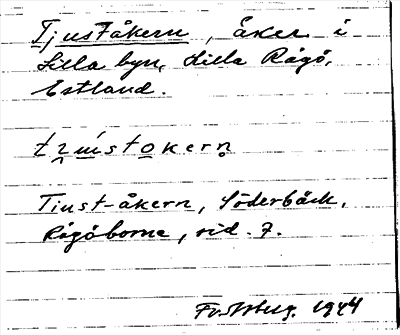 Tjuståkern, åker i
Lilla byn, Lilla Rågö,
Estland.
Tiust-åkern, Söderbäck,
Rågöborna, sid. 7.
1944